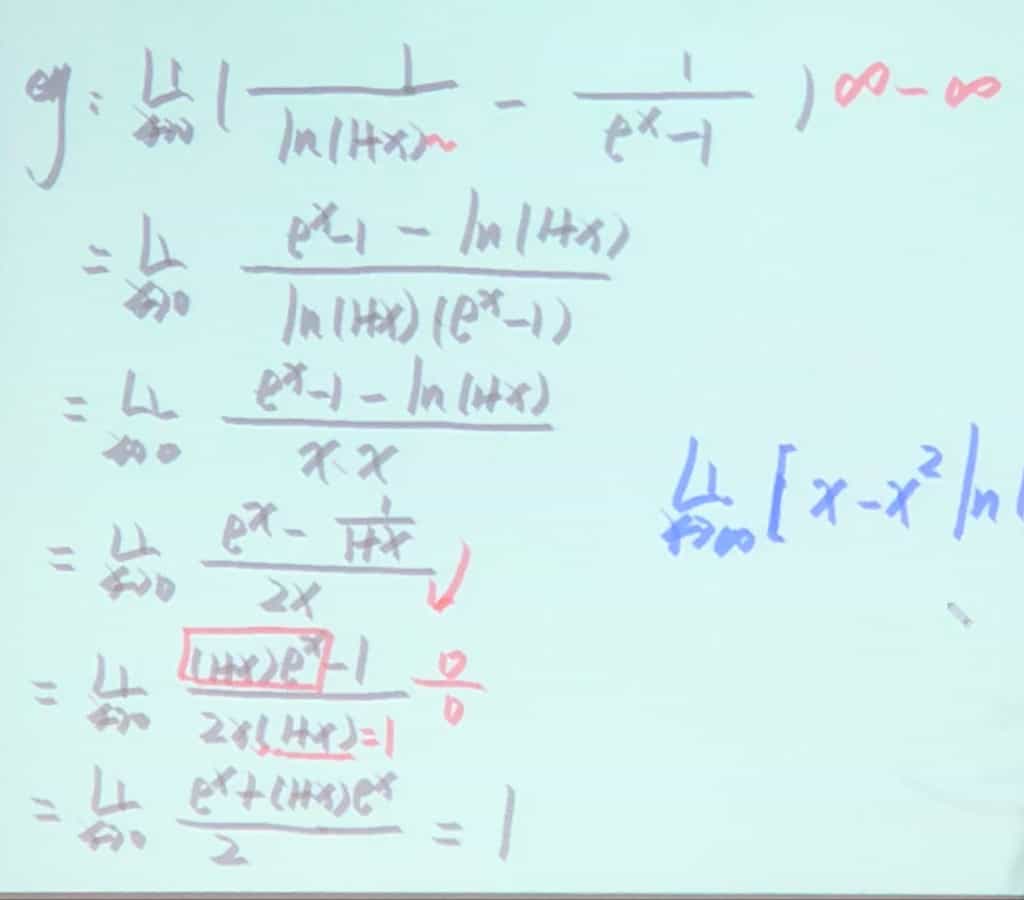 eg: lim x→0 ( 1/ln(1+x) - 1/(e^x-1) ) ∞-∞
= lim x→0 (e^x-1 - ln(1+x)) / (ln(1+x)(e^x-1))
= lim x→0 (e^x-1 - ln(1+x)) / (x·x)
= lim x→0 (e^x - 1/(1+x)) / (2x)
= lim x→0 ((1+x)e^x - 1) / (2x(1+x)) =1 0/0
= lim x→0 (e^x+(1+x)e^x) / 2 = 1
lim x→∞ [x-x^2 ln(